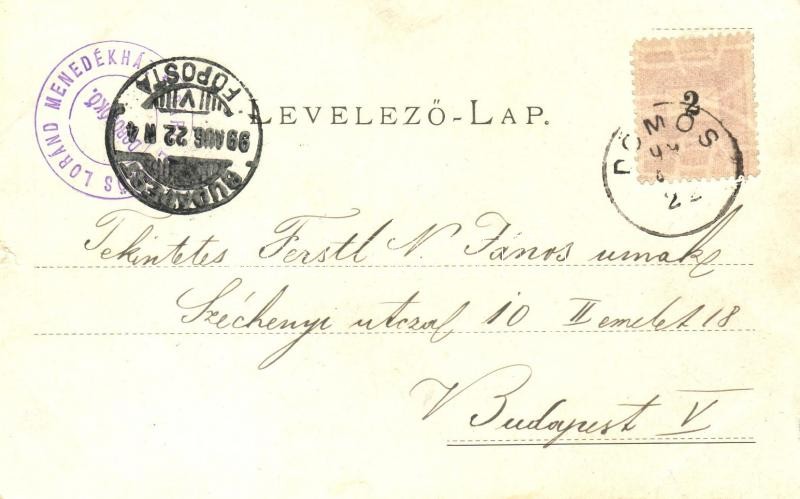 LEVELEZŐ-LAP.
LORÁND MENEDÉKHÁZ
BUDAPEST
99 AUG 22 N 4
V
FŐPOSTA
2
DÖMÖS
Tekintetes Ferstl N. János urnak
Széchenyi utcza 10 II emelet 18
Budapest V